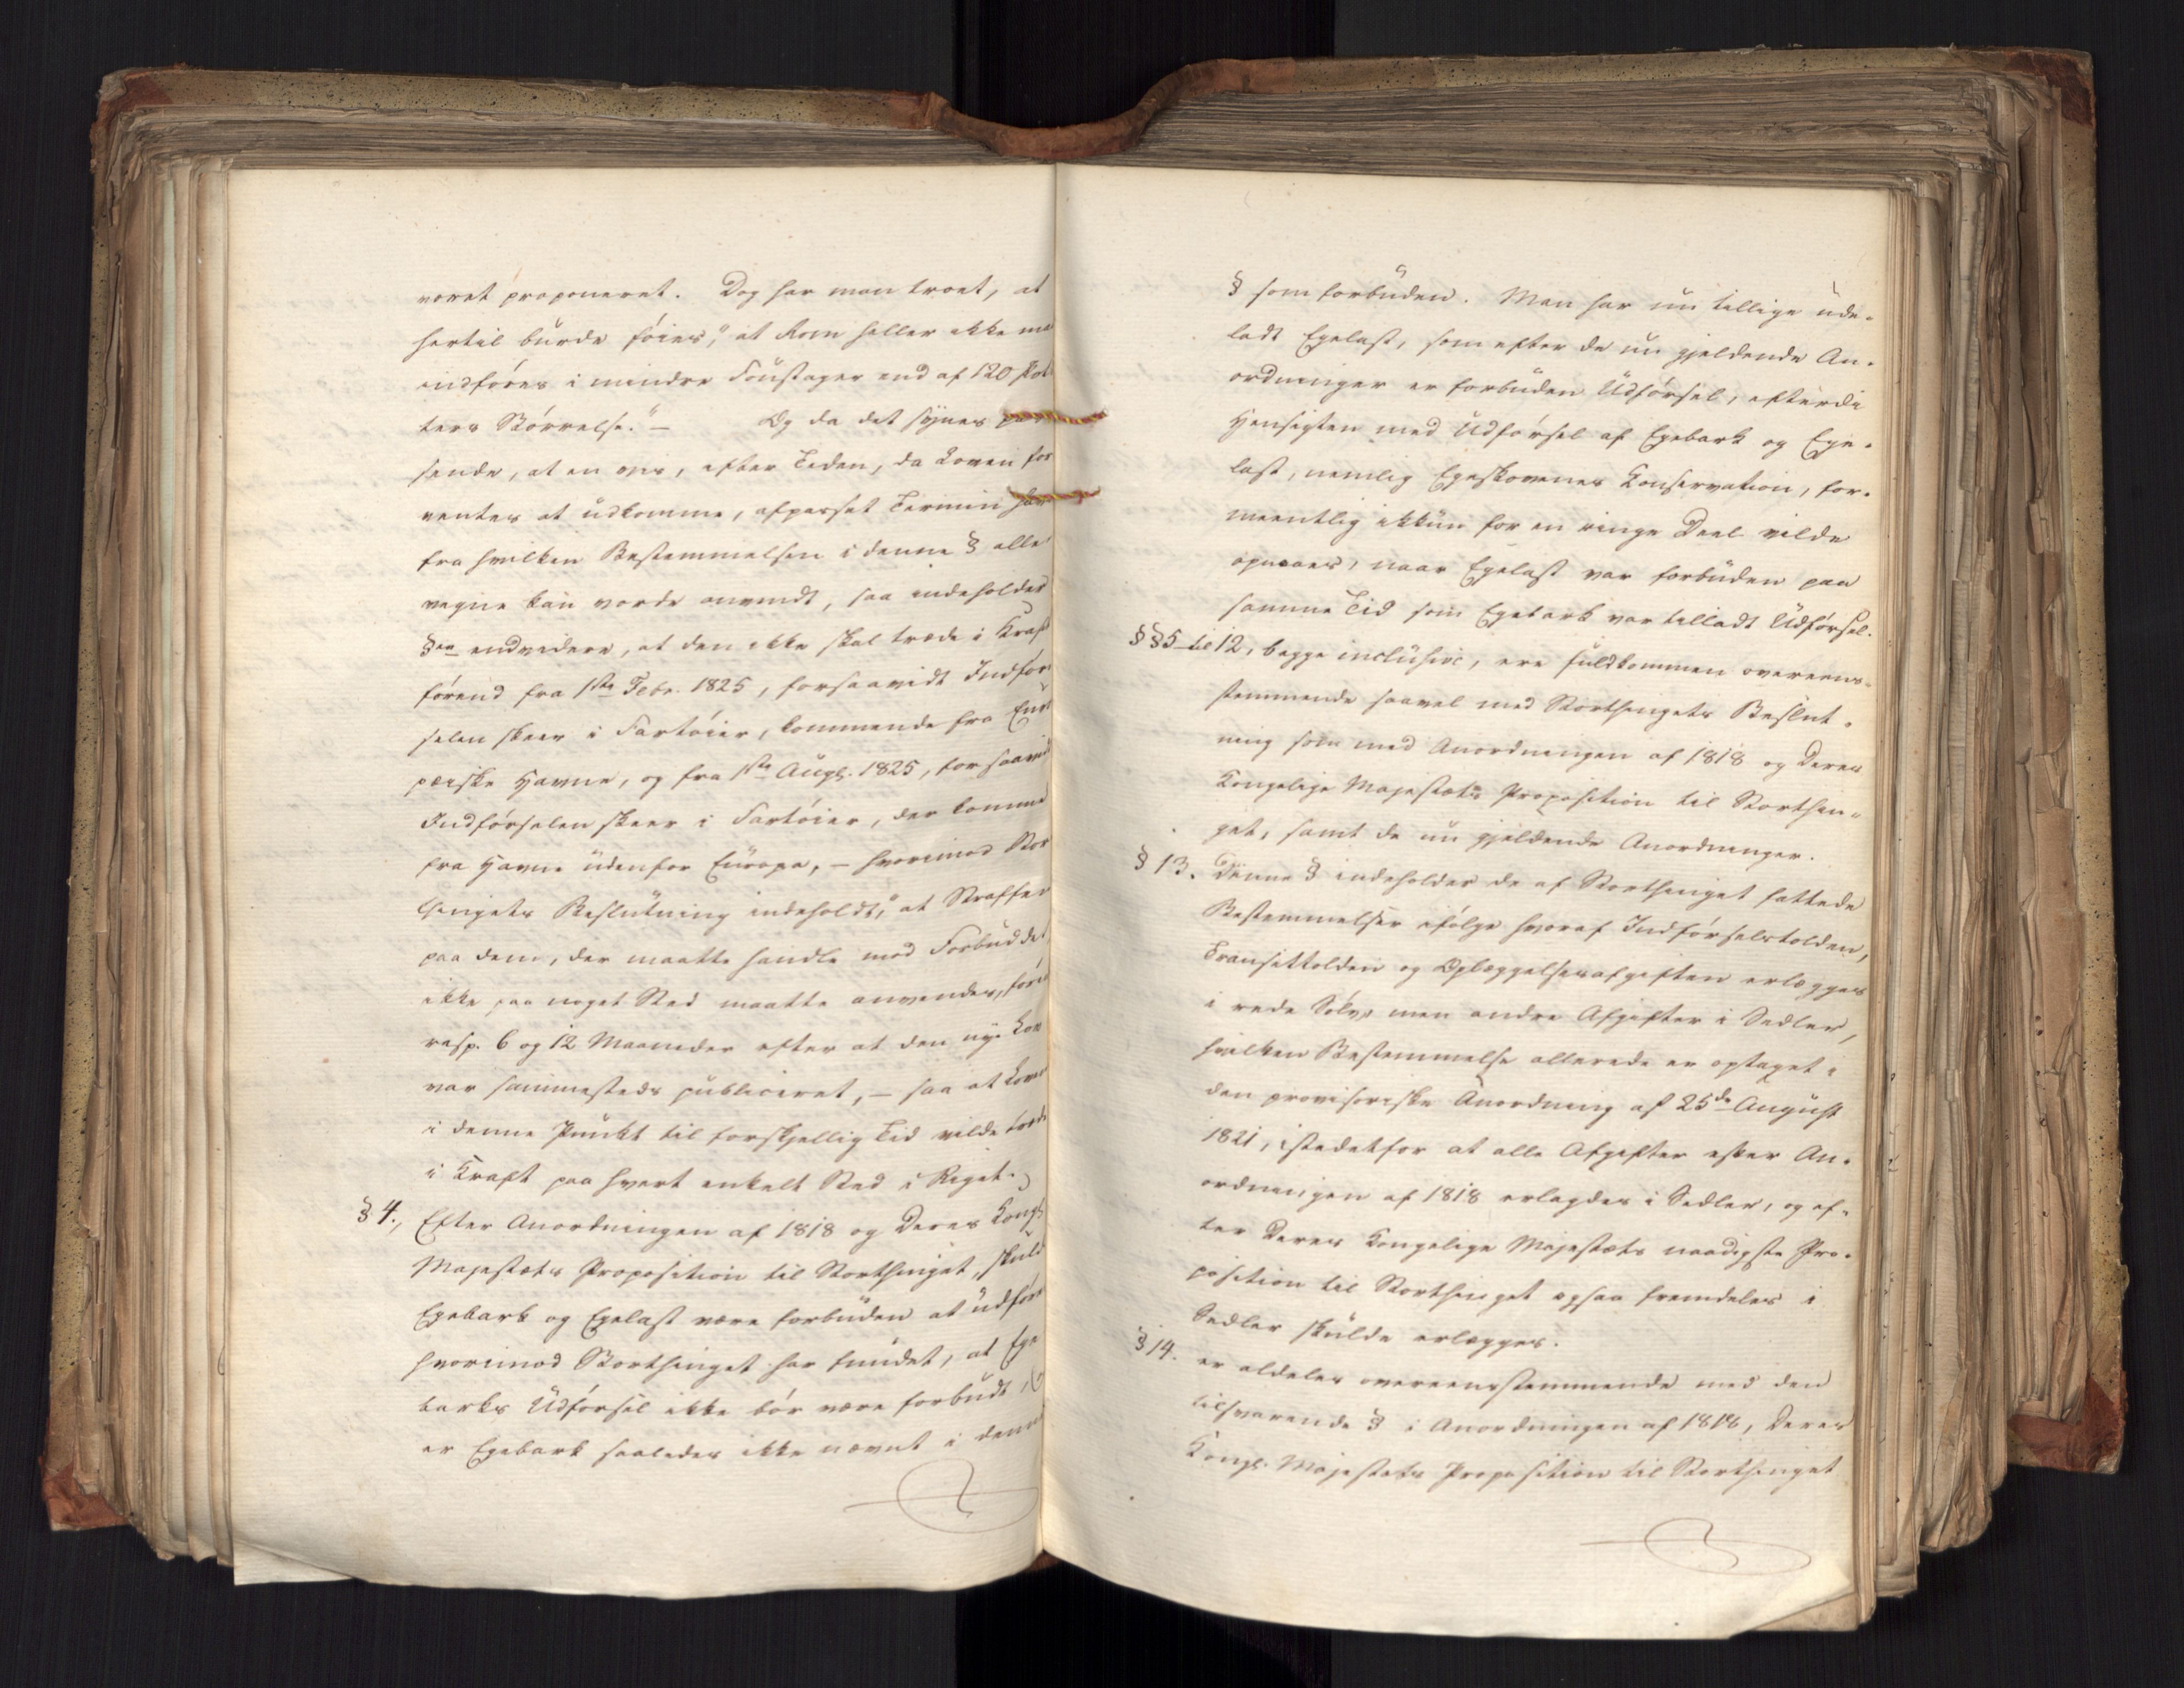 været proponeret. Dog har man troet, at
hertil burde føies, "at Rom heller ikke maa
indføres i mindre Foustager end af 120 Pot
ters Størrelse." — Og da det synes pas
sende, at en vis, efter Tiden, da Loven for
ventes at udkomme, afpasset Termin har
fra hvilken Bestemmelsen i denne § alle
vegne kan vorde anvendt, saa indeholder
§en endvidere, at den ikke skal træde i Kraft
førend fra 1ste Febr. 1825, forsaavidt Indfør
selen skeer i Fartøier, kommende fra Euro
pæiske Havne, og fra 1ste Augs. 1825, forsaavidt
Indførselen skeer i Fartøier, der komme
fra Havne udenfor Europa, — hvorimod Stor
thingets Beslutning indeholdt, "at Straffen
paa dem, der maatte handle mod Forbuddet
ikke paa noget Sted maatte anvendes, føren
resp. 6 og 12 Maaneder efter at den nye Lov
var sammesteds publiceret, — saa at Loven
i denne Punkt til forskjellig Tid vilde træde
i Kraft paa hvert enkelt Sted i Riget.
§ 4., Efter Anordningen af 1818 og Deres Kongl.
Majestæts Proposition til Storthinget, skuld
Egebark og Egelast være forbuden at udføre
hvorimod Storthinget har fundet, at Ege
barks Udførsel ikke bør være forbudt,
er Egebark saaledes ikke nævnt i denne
§ som forbuden. Man har nu tillige ude-
ladt Egelast, som efter de nu gjeldende An-
ordninger er forbuden Udførsel, efterdi
Hensigten med Udførsel af Egebark og Ege-
last, nemlig Egeskovenes Conservation, for-
meentlig ikkun for en ringe Deel vilde
opnaaes, naar Egelast var forbuden paa
samme Tid som Egebark var tilladt Udførsel.
§§ 5 til 12, begge inclusive, ere fuldkommen overeens-
stemmende saavel med Storthingets Beslut-
ning som med Anordningen af 1818 og Deres
Kongelige Majestæts Proposition til Storthin-
get, samt de nu gjeldende Anordninger.
§ 13. Denne § indeholder de af Storthinget fattede
Bestemmelser ifølge hvoraf Indførselstolden,
Transittolden og Oplæggelsesafgiften erlægges
i rede Sølv, men andre Afgifter i Sedler,
hvilken Bestemmelse allerede er optaget i
den provisoriske Anordning af 25de August
1821, istedetfor at alle Afgifter efter An-
ordningen af 1818 erlagdes i Sedler, og ef-
ter Deres Kongelige Majestæts naadigste Pro-
position til Storthinget ogsaa fremdeles i
Sedler skulde erlægges.
§ 14. er aldeles overeensstemmende med den
tilsvarende § i Anordningen af 1818, Deres
Kongl. Majestæts Proposition til Storthinget